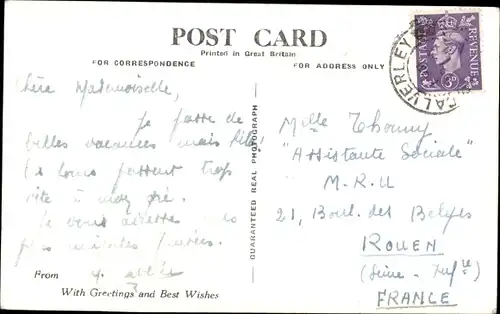 POST CARD
Printed in Great Britain
FOR CORRESPONDENCE
FOR ADDRESS ONLY
CALVERLEY
POSTAGE
REVENUE
3D
Chère Mademoiselle,
Je passe de
belles vacances mais
les jours passent trop
vite à mon gré.
Je vous adresse mes
plus amicales pensées.
From
With Greetings and Best Wishes
GUARANTEED REAL PHOTOGRAPH
Mlle Thomy
"Assistante Sociale"
M.R.U
21, Boul. des Belges
ROUEN
(Seine - Infre)
FRANCE